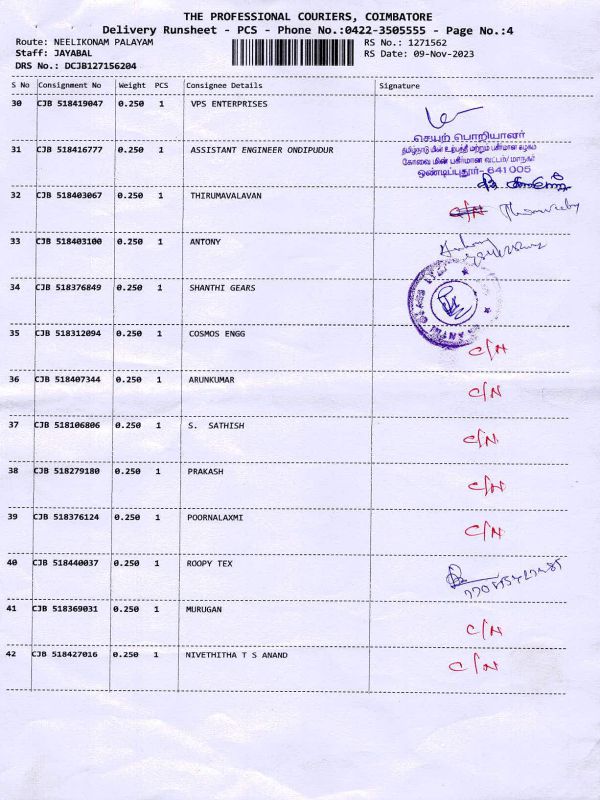 THE PROFESSIONAL COURIERS, COIMBATORE
Delivery Runsheet - PCS - Phone No.:0422-3505555 - Page No.:4
Route: NEELIKONAM PALAYAM
RS No.: 1271562
Staff: JAYABAL
RS Date: 09-Nov-2023
DRS No.: DCJB127156204
S No Consignment No Weight PCS Consignee Details Signature
30 CJB 518419047 0.250 1 VPS ENTERPRISES
செயற் பொறியாளர்
31 CJB 518416777 0.250 1 ASSISTANT ENGINEER ONDIPUDUR
தமிழ்நாடு மின் உற்பத்தி மற்றும் பகிர்மான கழகம்
கோவை மின் பகிர்மான வட்டம்/மாநகர்
ஒண்டிப்புதூர்-641005
32 CJB 518403067 0.250 1 THIRUMAVALAVAN
C/N
33 CJB 518403100 0.250 1 ANTONY
Antony
34 CJB 518376849 0.250 1 SHANTHI GEARS
35 CJB 518312094 0.250 1 COSMOS ENGG
C/N
36 CJB 518407344 0.250 1 ARUNKUMAR
C/N
37 CJB 518106806 0.250 1 S. SATHISH
C/N
38 CJB 518279180 0.250 1 PRAKASH
C/N
39 CJB 518376124 0.250 1 POORNALAXMI
C/N
40 CJB 518440037 0.250 1 ROOPY TEX
41 CJB 518369031 0.250 1 MURUGAN
C/N
42 CJB 518427016 0.250 1 NIVETHITHA T S ANAND
C/N